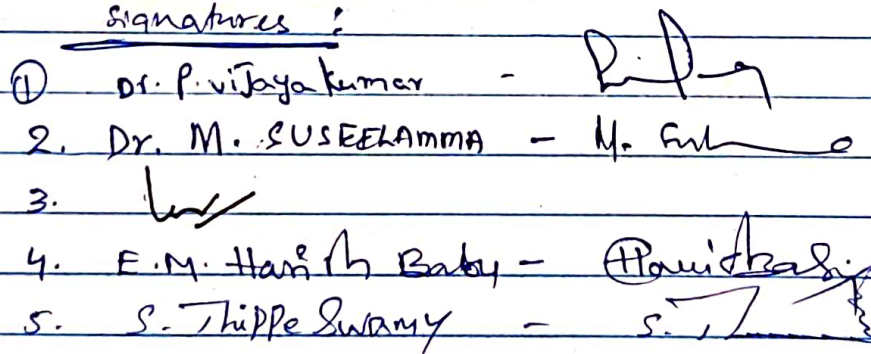 Signatures :
① Dr. P. Vijaya Kumar -
2. Dr. M. SUSEELAMMA - M.
3.
4. E.M. Harish Baby -
5. S. Thippe Swamy - S.